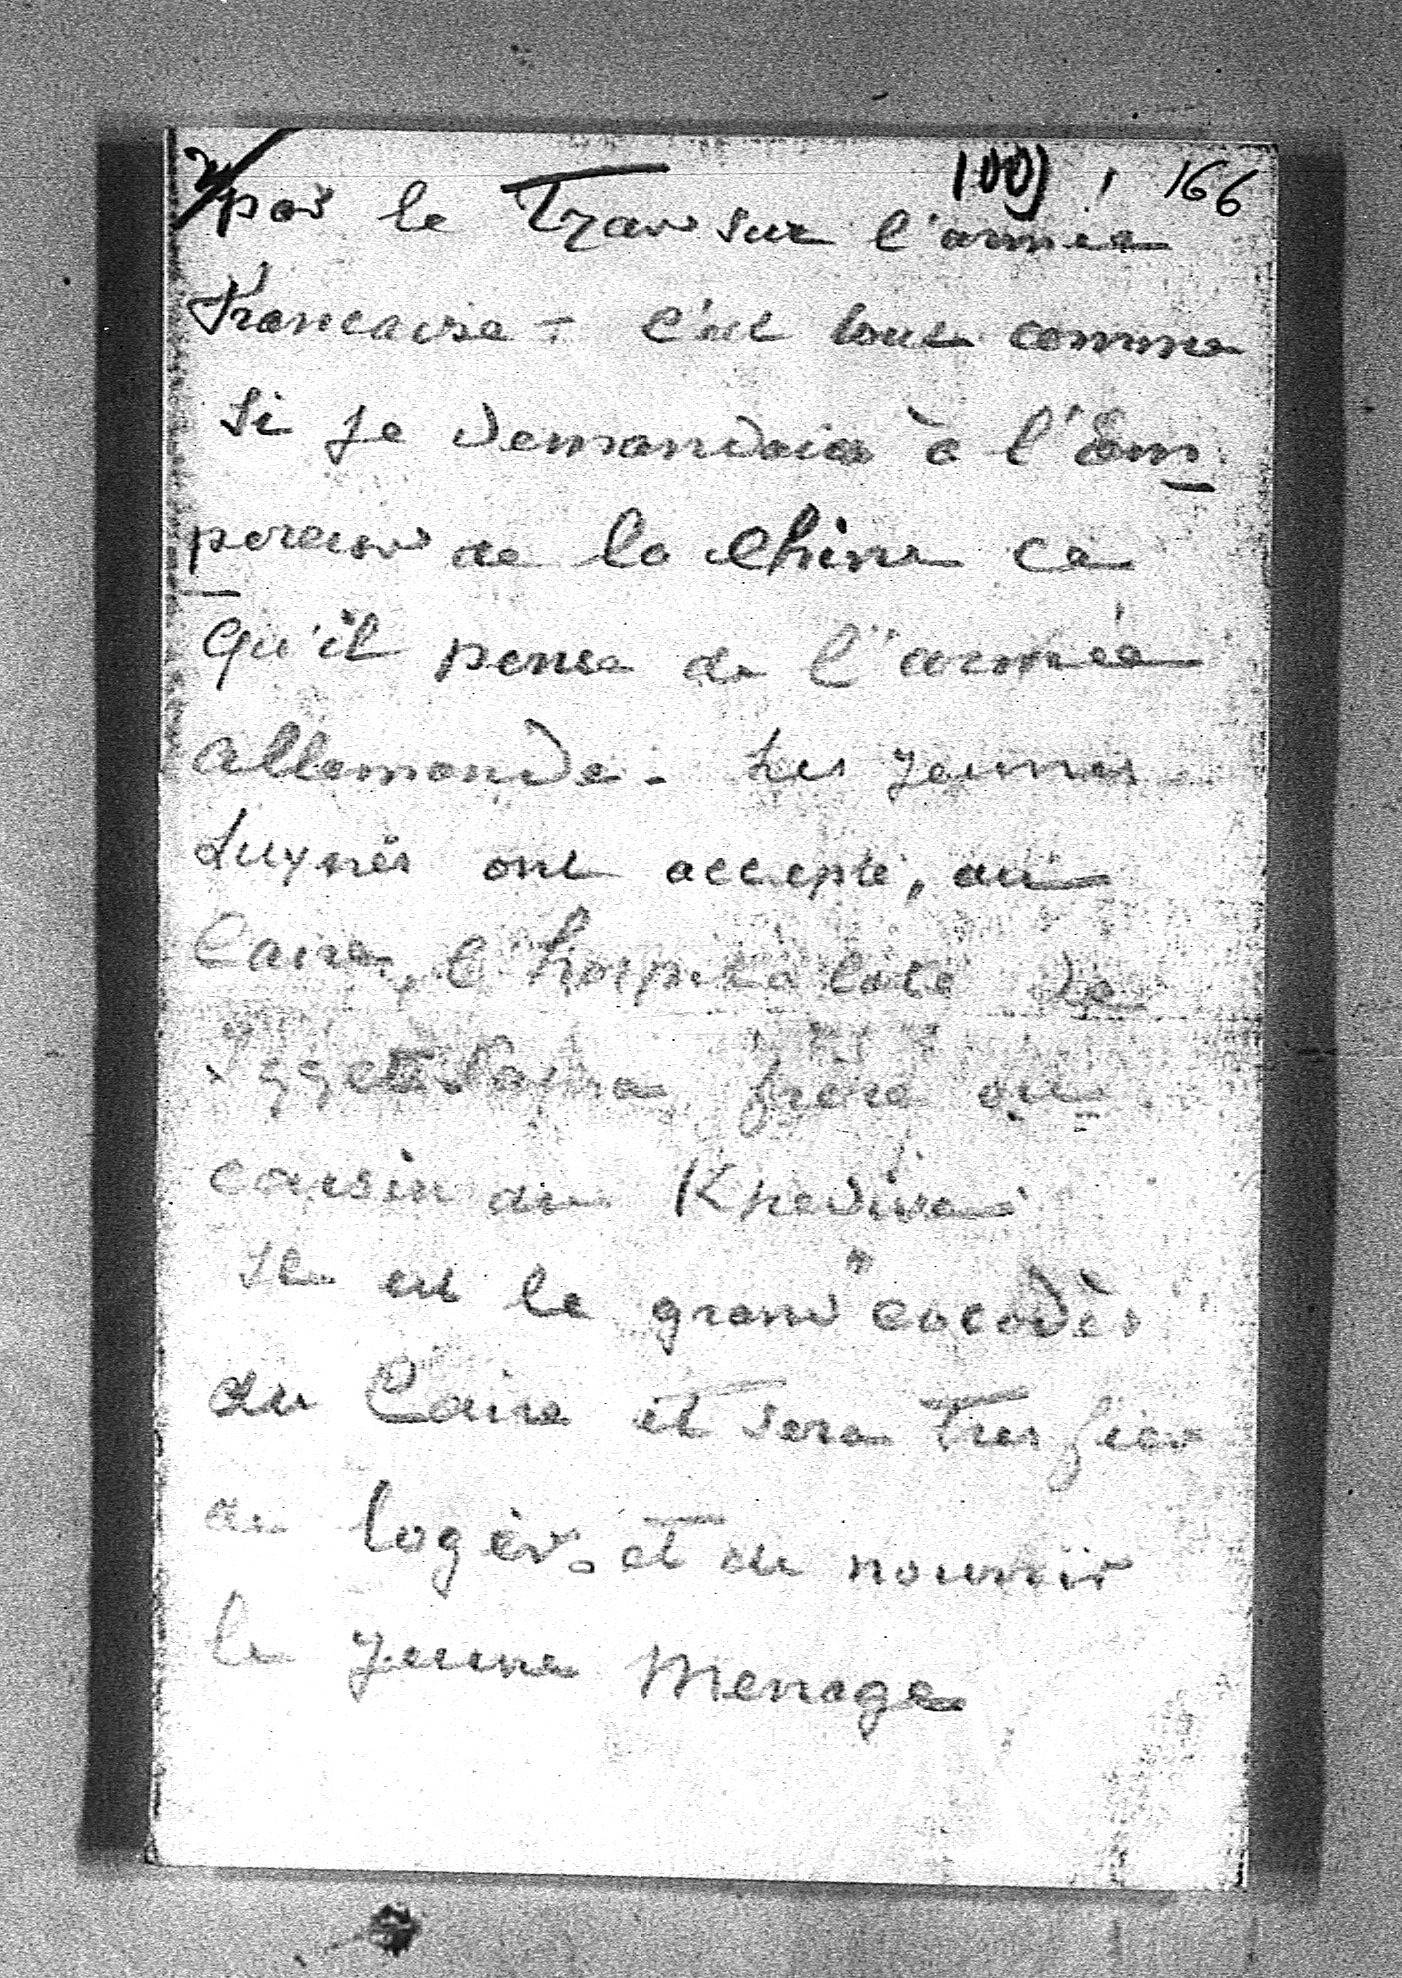 2/ 109 166
par le Tzar sur l'armée
française - c'est tout comme
si je demandais à l'Em
pereur de la Chine ce
qu'il pense de l'armée
allemande - Les jeunes
Luynes ont accepté, au
Caire, l'hospitalité de
frère ou
cousin du Khedive
Il est le grand "cocodès"
du Caire et sera tres fier
de loger et de nourrir
le jeune menage